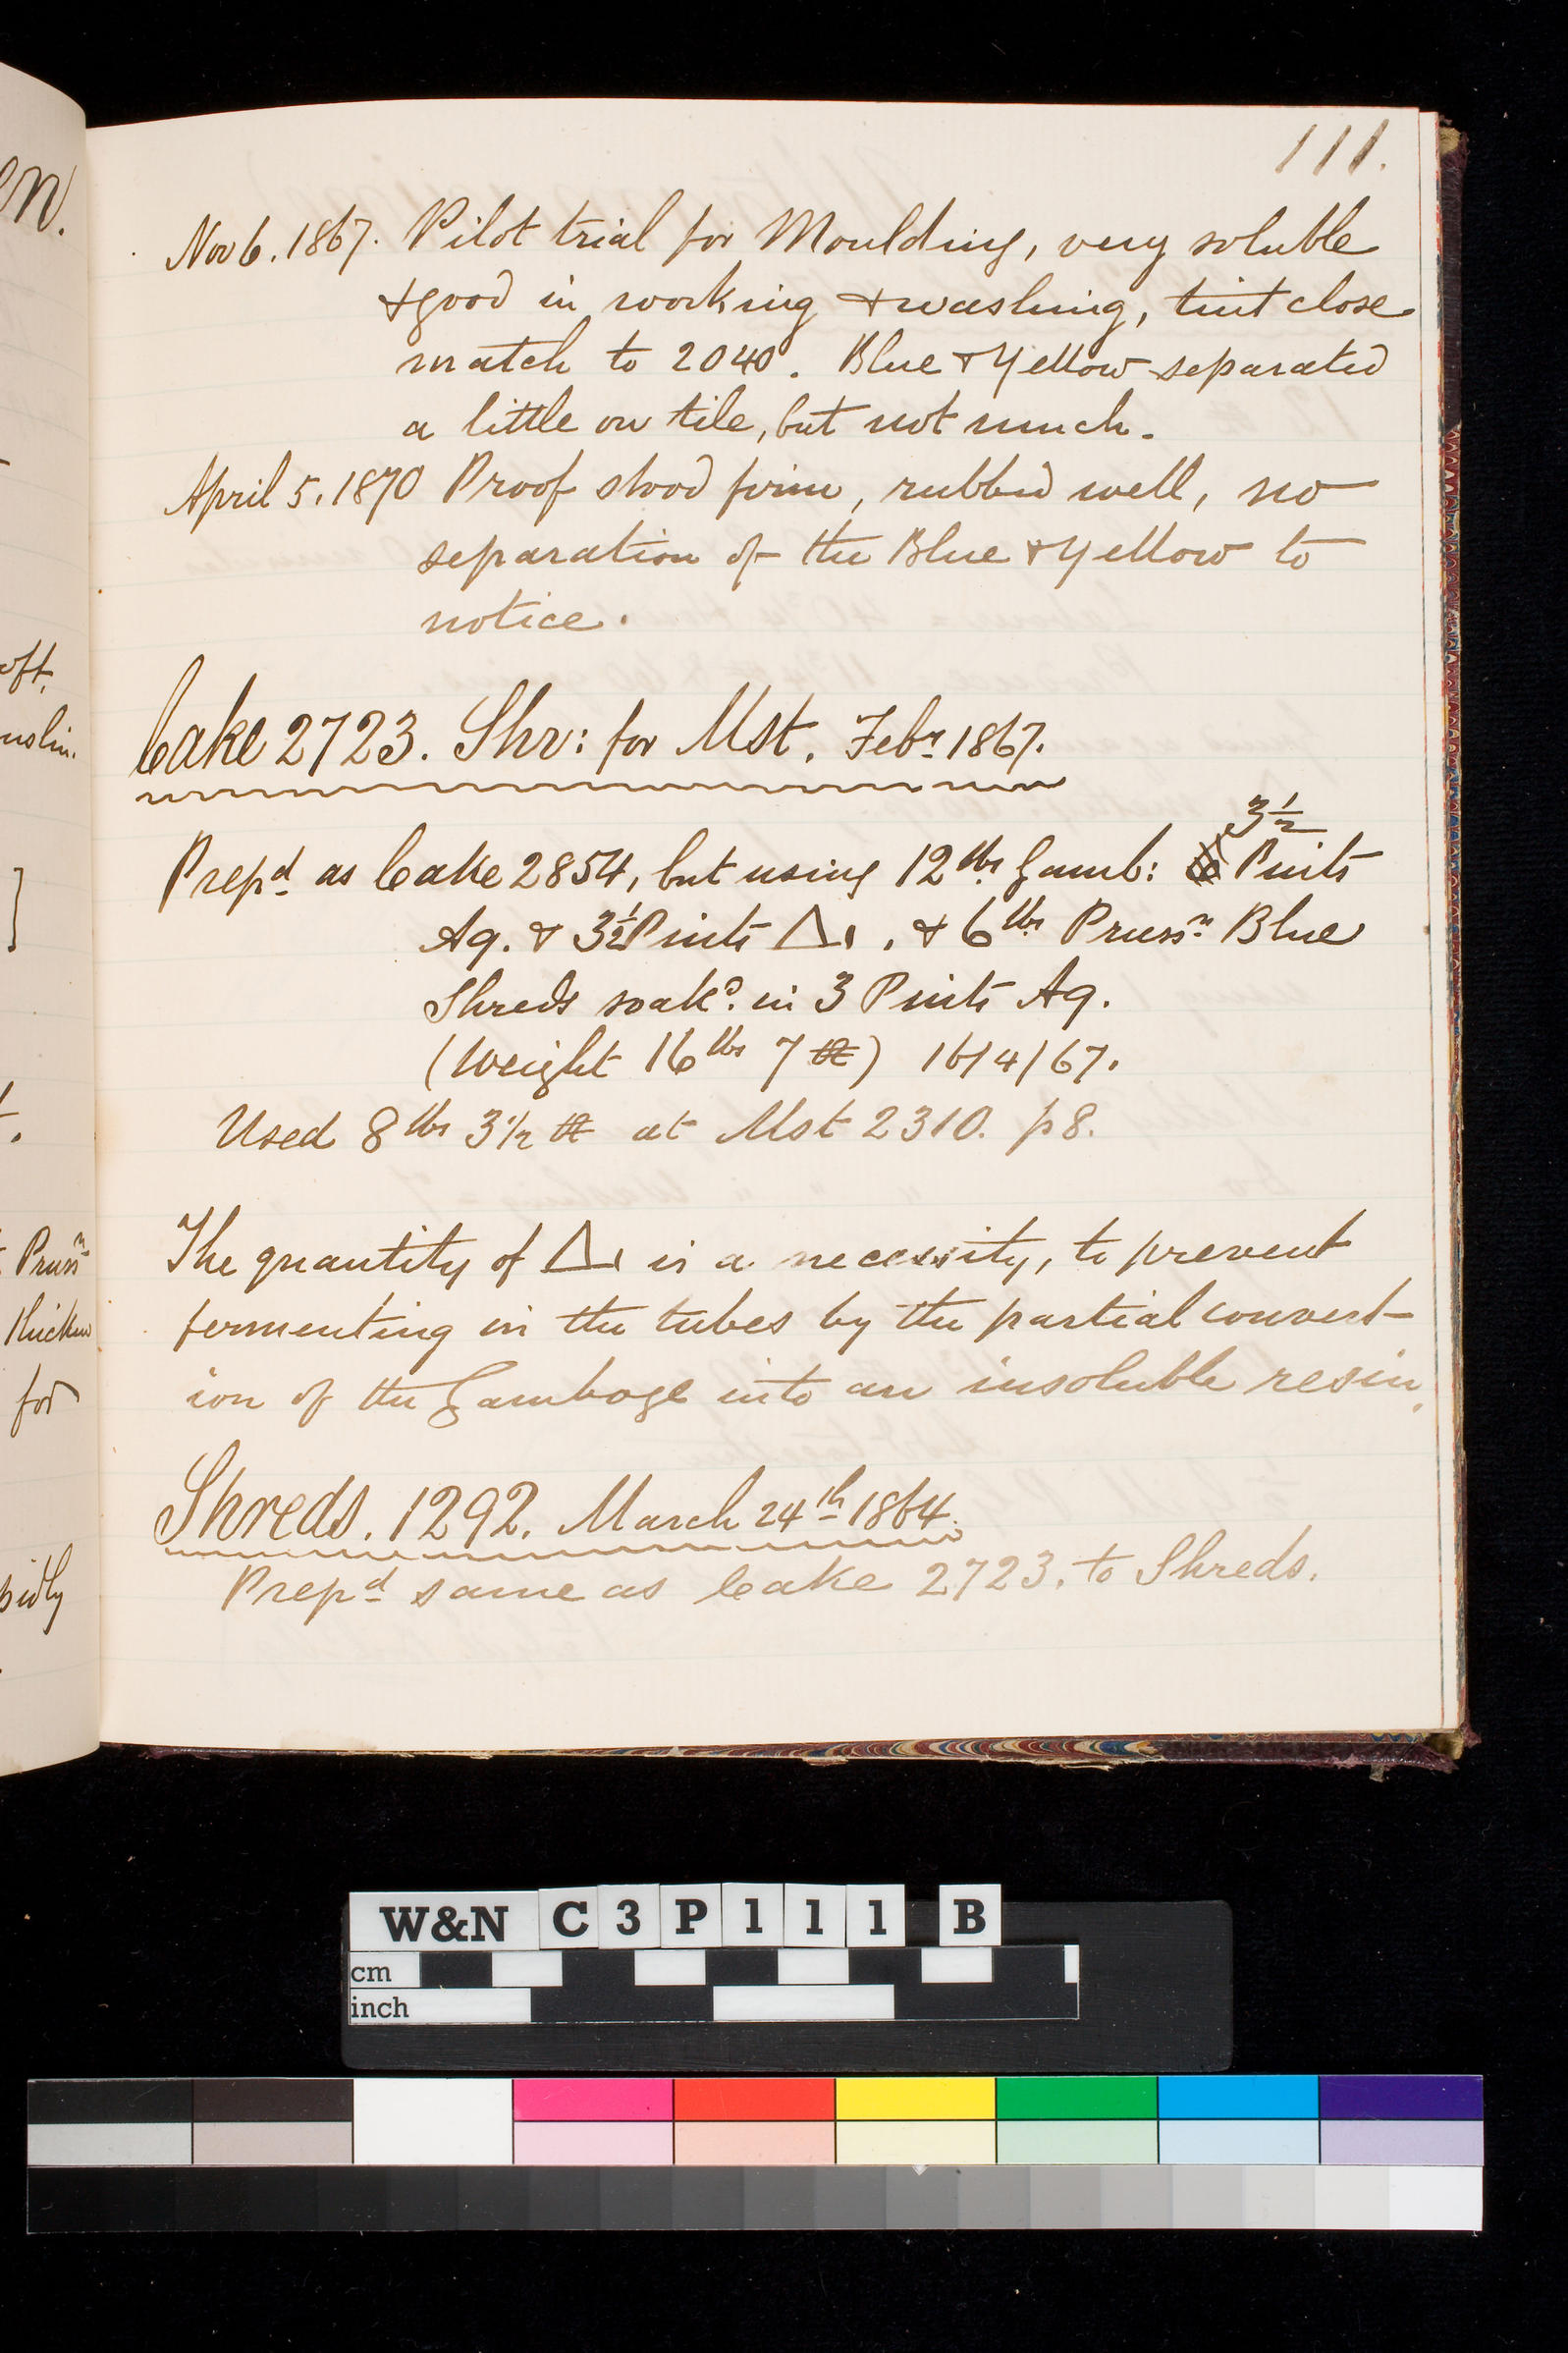 111.
Nov 6. 1867. Pilot trial for Moulding, very soluble
& good in working & washing, tint close
match to 2040. Blue & Yellow separated
a little on tile, but not much.
April 5. 1870 Proof stood firm, rubbed well, no
separation of the Blue & Yellow to
notice.
Cake 2723. Shr: for Mst. Febr 1867.
3½
Prepd as Cake 2854, but using 12 lbs Gamb: Pints
Aq. & 3½ Pints Δ, & 6 lbs Prussn Blue
Shreds soakd. in 3 Pints Aq.
(Weight 16 lbs 7 ) 16/4/67.
Used 8 lbs 3½ at Mst 2310. p8.
The quantity of Δ is a necessity, to prevent
fermenting in the tubes by the partial convert-
ion of the Gamboge into an insoluble resin.
Shreds. 1292. March 24th 1864.
Prepd same as Cake 2723. to Shreds.
oft.
]
Prussn
thicken
for
W&N C 3 P 1 1 1 B
cm
inch